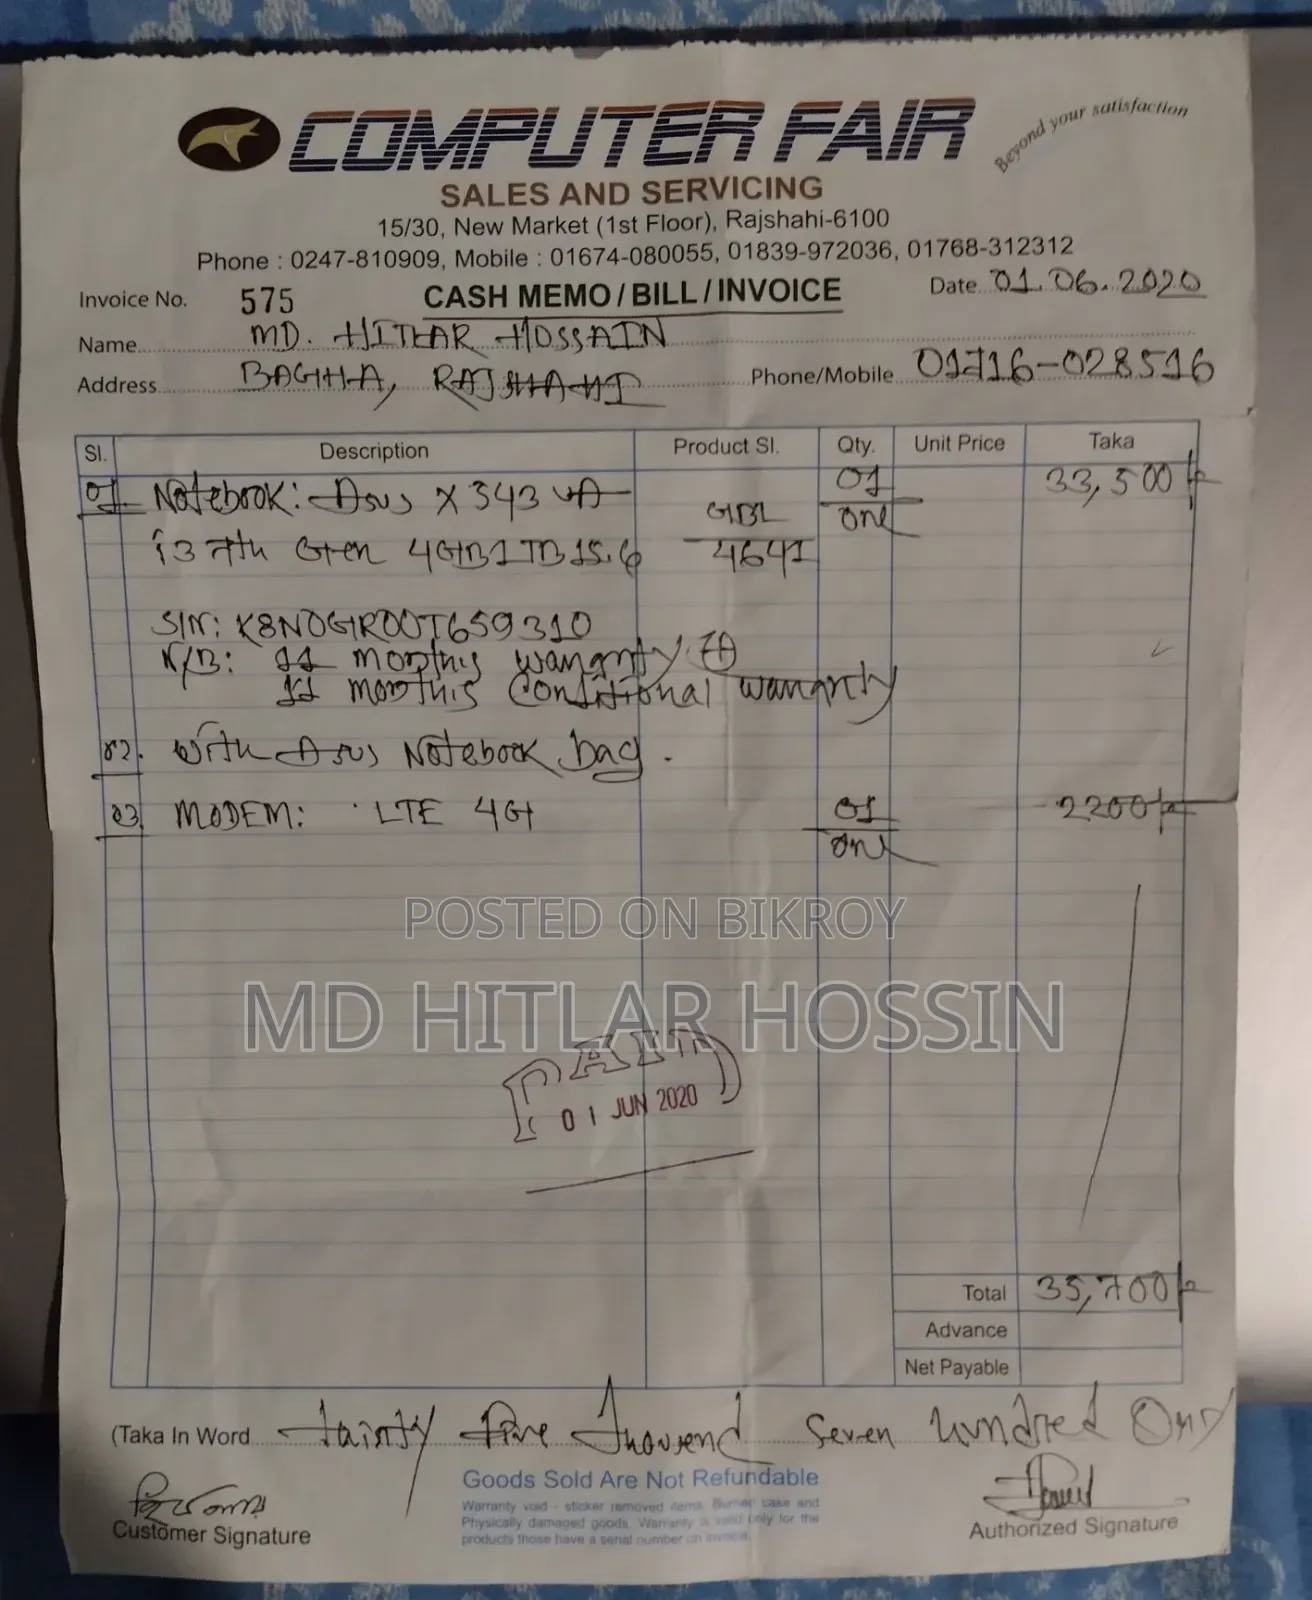 COMPUTER FAIR
Beyond your satisfaction
SALES AND SERVICING
15/30, New Market (1st Floor), Rajshahi-6100
Phone : 0247-810909, Mobile : 01674-080055, 01839-972036, 01768-312312
Invoice No. 575 CASH MEMO/BILL/INVOICE Date 01.06.2020
Name MD. HITLAR HOSSAIN
Address BAGHA, RAJSHAHI Phone/Mobile 01716-028516
Sl. Description Product Sl. Qty. Unit Price Taka
01 Notebook: Asus X543UA GBL 01 33,500/-
i3 7th Gen 4GB 1TB 15.6 4641 one
S/N: K8N0GR00T659310
N/B: 11 months warranty
11 months Conditional warranty
02. With Asus Notebook bag.
03. MODEM: LTE 4G 01 2200/-
one
POSTED ON BIKROY
MD HITLAR HOSSIN
PAID
01 JUN 2020
Total 35,700/-
Advance
Net Payable
(Taka In Word Thirty Five Thousend Seven Hundred Only
Goods Sold Are Not Refundable
Warranty void - sticker removed items, Burned case and
Physically damaged goods. Warranty is valid only for the
products those have a serial number on invoice.
Customer Signature
Authorized Signature